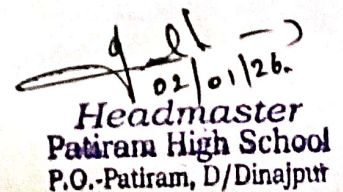 02/01/26.
Headmaster
Patiram High School
P.O.-Patiram, D/Dinajpur